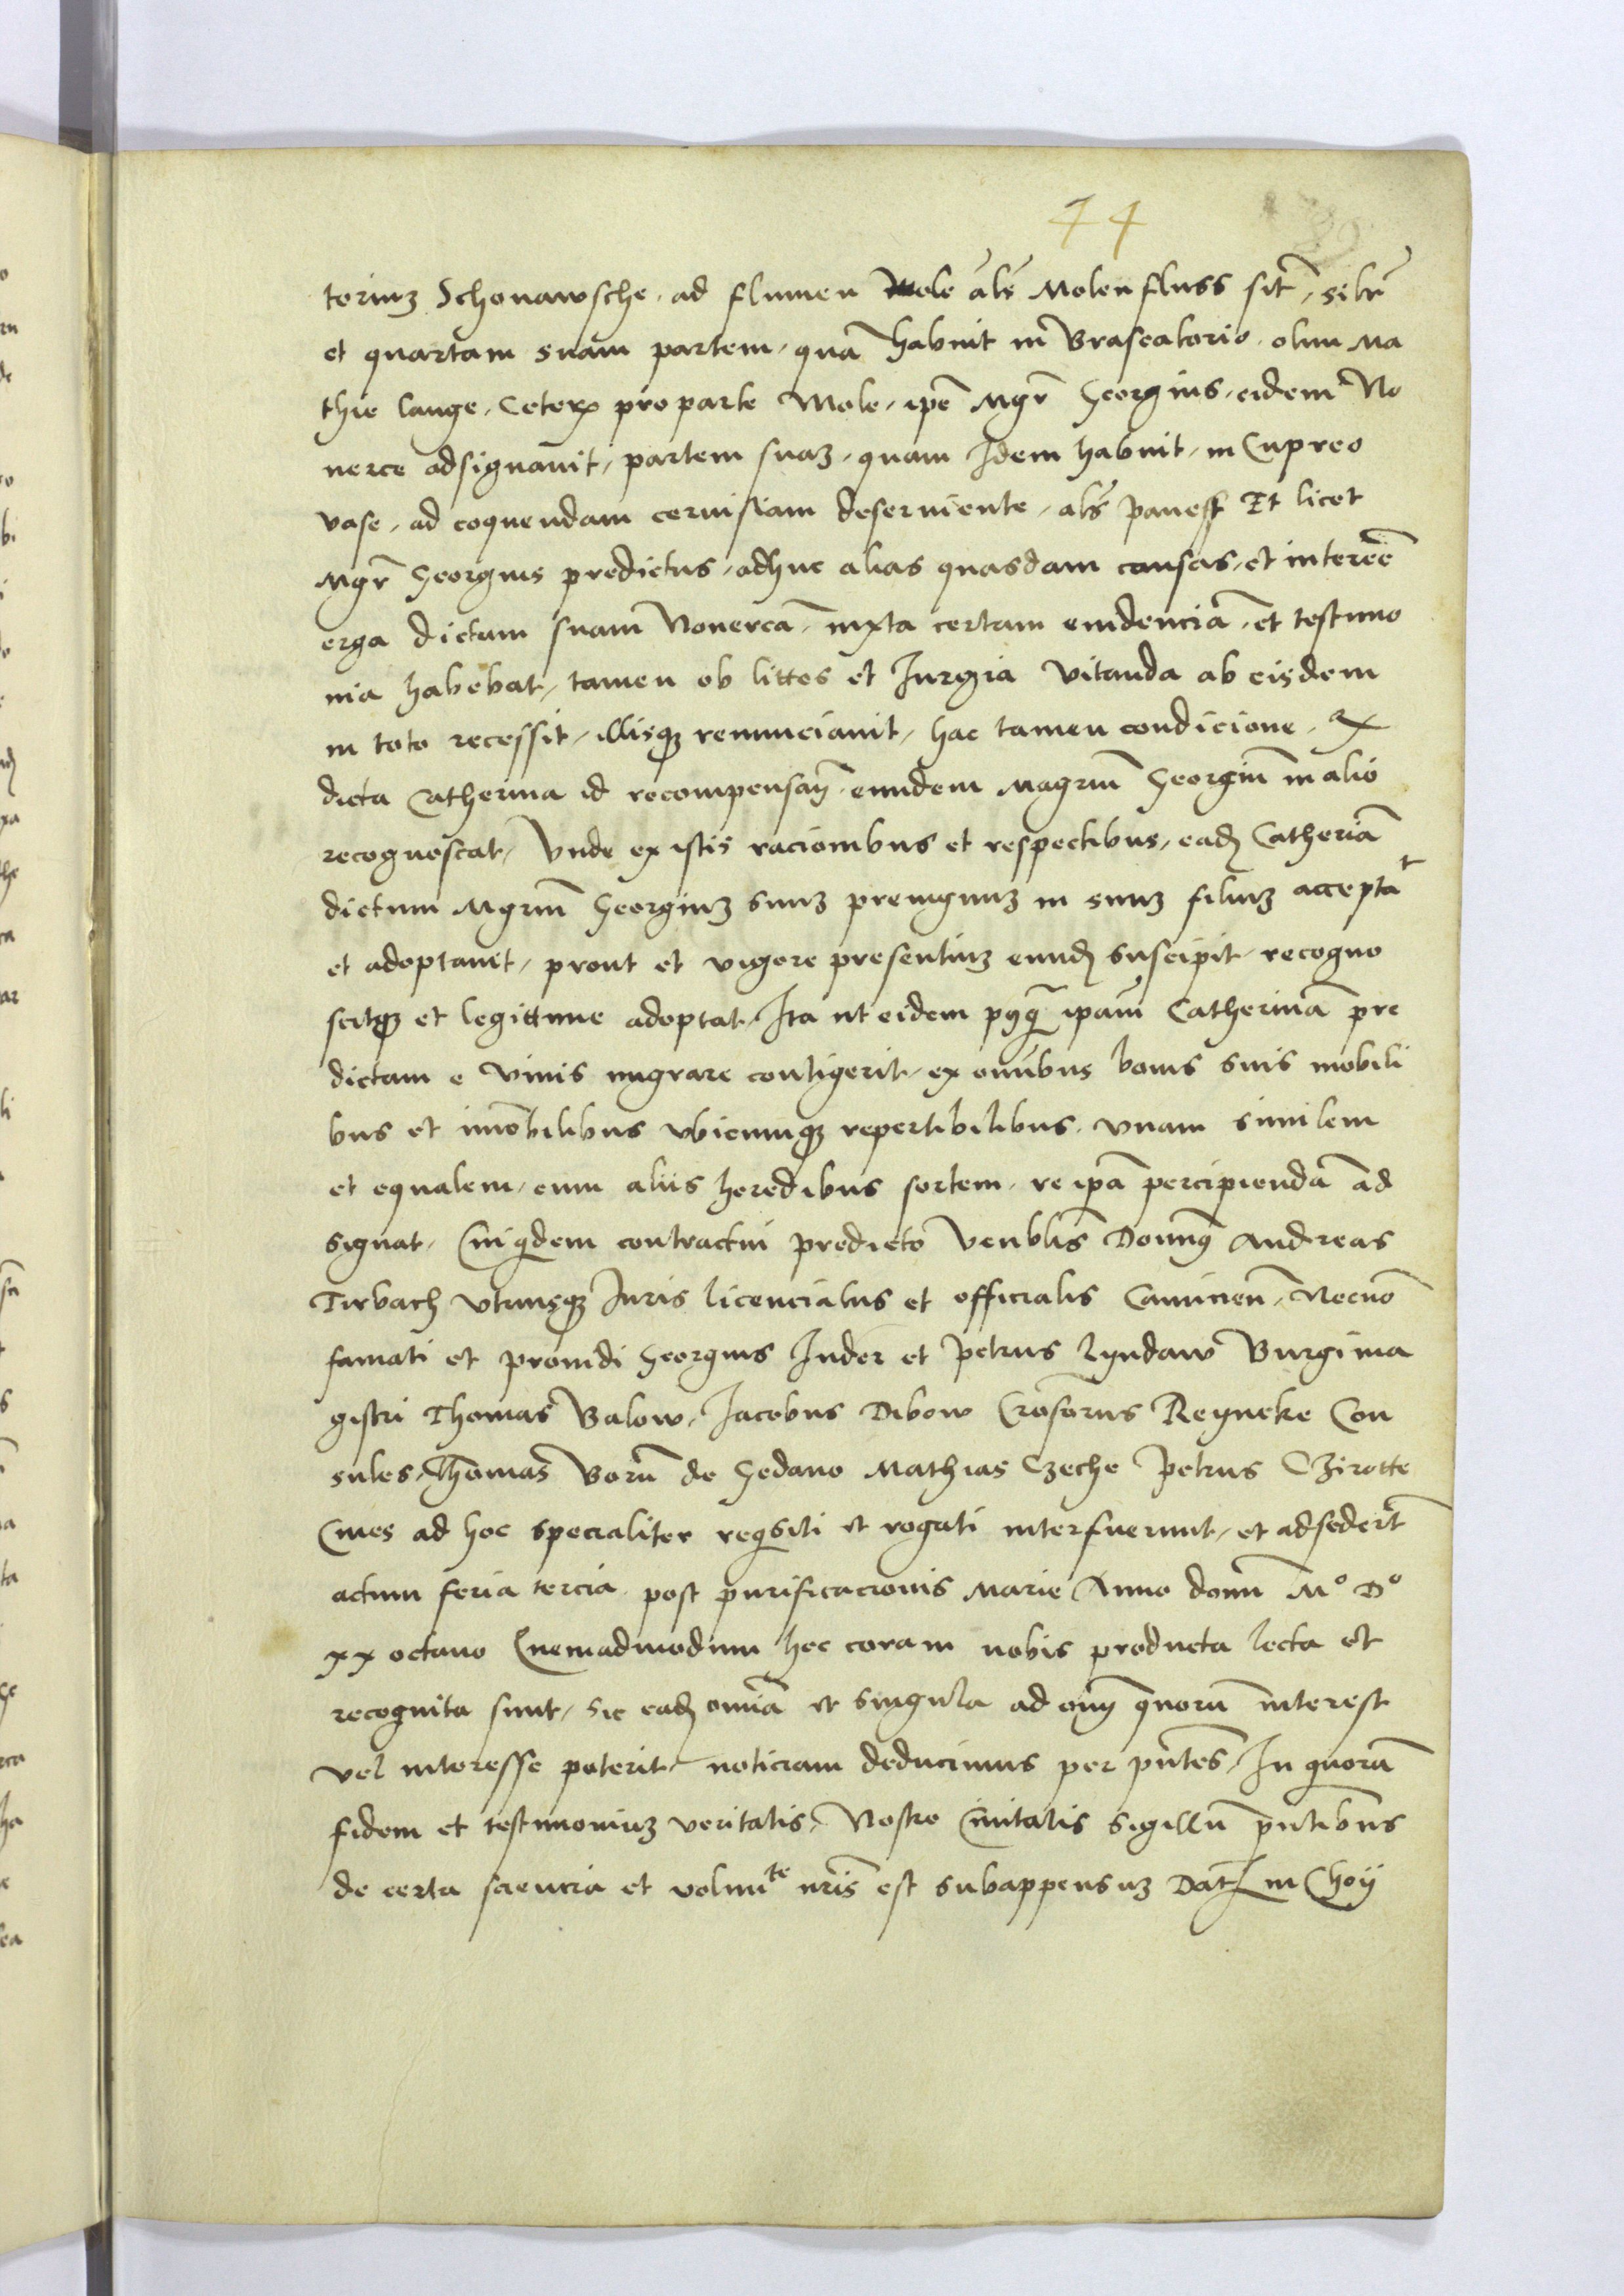 44
toriuʒ Schonawsche, ad flumen Mole al̄s Molenfluss sit̄,
et quartam suam partem, quā habuit in Braseatorio, olim Ma
thie lange, Ceteꝝ pro parte Mole, ip̄e Mgr̄ Georgius, eidem No
uerce adsignauit, partem suaʒ, quam Idem habuit, in Cupreo
vase, ad coquendam ceruisiam deseruiente, al̄s
Et licet
Mgr̄ Georgius predictus, adhuc alias quasdam causas, et intereē
erga dictam suam Nouercā, iuxta certam euidenciā, et testimo
nia habebat, tamen ob littes et Jurgia vitanda ab eisdem
in toto recessit, illisqꝫ renunciauit, hac tamen condicione, ꝙ
dicta Catherina id eundem Magrum̄ Georgiū in alio
recognoscat, Vnde ex istis racionibus et respectibus, ead Catherīa
dictum Mgrum̄ Georgiuʒ suuʒ preuignuʒ in suuʒ filiuʒ acceptat
et adoptauit, prout et vigore presentiuʒ eund suscipit, recogno
scitqꝫ et legittime adoptat, Ita ut eidem ipam̄ Catherinā pre
dictam e viuis migrare contigerit, ex om̄ibus bonis suis mobili
bus et imōbilibus vbicumqꝫ repertibilibus, vnam similem
et equalem, cum aliis heredibus sortem, re ipā percipiendā ad
signat, Cuiqdem contractui predicto Venblis̄ Domnꝰ Andreas
Tirbach vtriusqꝫ Juris licenciatus et officialis Caminen̄, Necnō
famati et prouidi Georgius Inder et Petrus Lyndaw Burgima
gistri Thomas Balow, Jacobus Dibow Reyneke Con
sules, Thomas de Sedano Mathias Czeche Petrus Czirotte
Ciues ad hoc specialiter reqsiti et rogati interfuerunt, et adsederūt
actum feria tercia post purificacionis Marie Anno domī Mº Dº
xx octauo Quemadmodum hec coram nobis producta lecta et
recognita sunt, sic ead om̄ia et singula ad quorū interest
vel interesse poterit, noticiam deducimus per pn̄tes, In quorū
fidem et testimoniuʒ veritatis, Nostre Ciuitatis Sigillū pn̄tibus
de certa sciencia et volun^te nr̄is est subappensuʒ Dat in